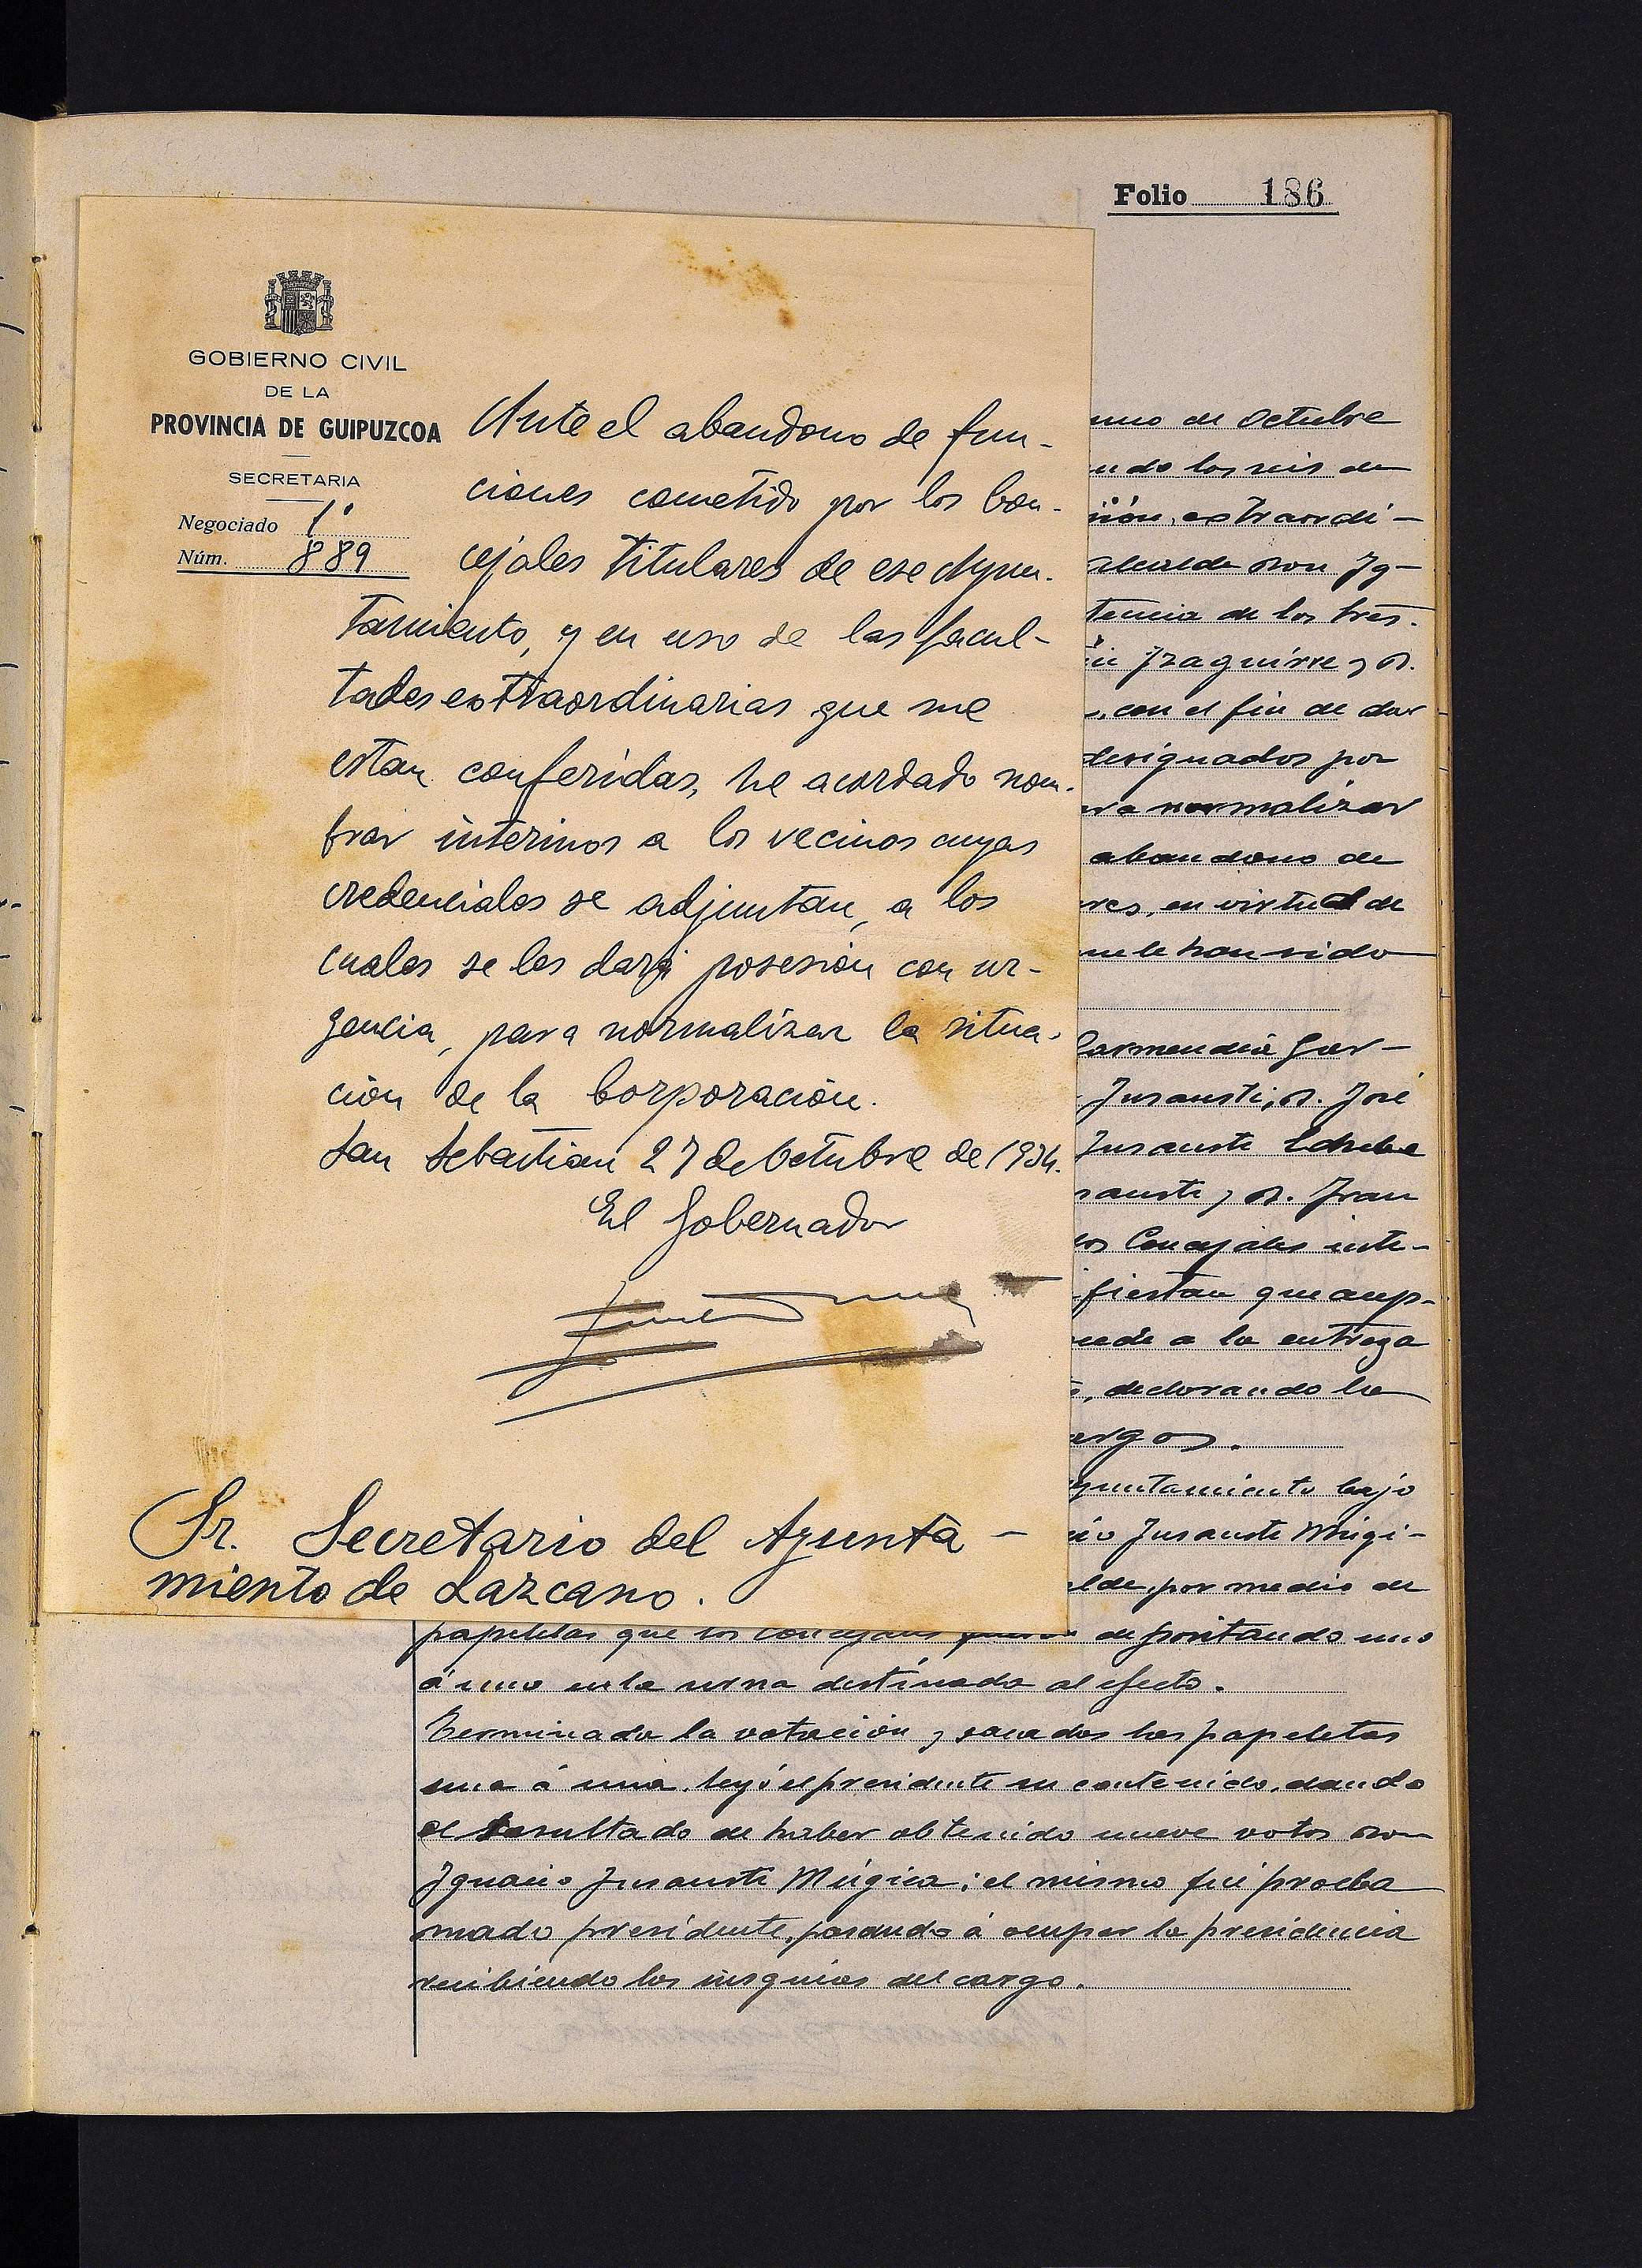 Folio 186
GOBIERNO CIVIL
DE LA
PROVINCIA DE GUIPUZCOA
SECRETARIA
Negociado 1º
Núm. 889
Ante el abandono de fun-
ciones cometido por los Con-
cejales Titulares de ese Ayun-
tamiento, y en uso de las facul-
tades extraordinarias que me
estan conferidas, he acordado nom-
brar interinos a los vecinos cuyas
credenciales se adjuntan, a los
cuales se les dará posesión con ur-
gencia, para normalizar la situa-
ción de la Corporación.
San Sebastian 27 de Octubre de 1934.
El Gobernador
Sr. Secretario del Ayunta-
miento de Lazcano.
uno de Octubre
ndo las seis de
sión, extraordi-
alcalde Don Ig-
tencia de los tres
Izaguirre y D.
, con el fin de dar
designados por
ra normalizar
abandono de
res, en virtud de
que le han sido
Garmendia Gar-
Insausti, D. José
Insausti
sausti, y D. Juan
los Concejales inte-
fiestan que acep-
cede a la entrega
, declarando les
argos.
yuntamiento bajo
cio Insausti Múgi-
alde, por medio de
papeletas que los concejales fueron depositando uno
á uno en la urna destinada al efecto.
Terminada la votación y sacadas las papeletas
una á una, leyó el presidente su contenido, dando
el resultado de haber obtenido nueve votos Don
Ignacio Insausti Múgica; el mismo fué procla
mado presidente, pasando á ocupar la presidencia
recibiendo las insignias del cargo.